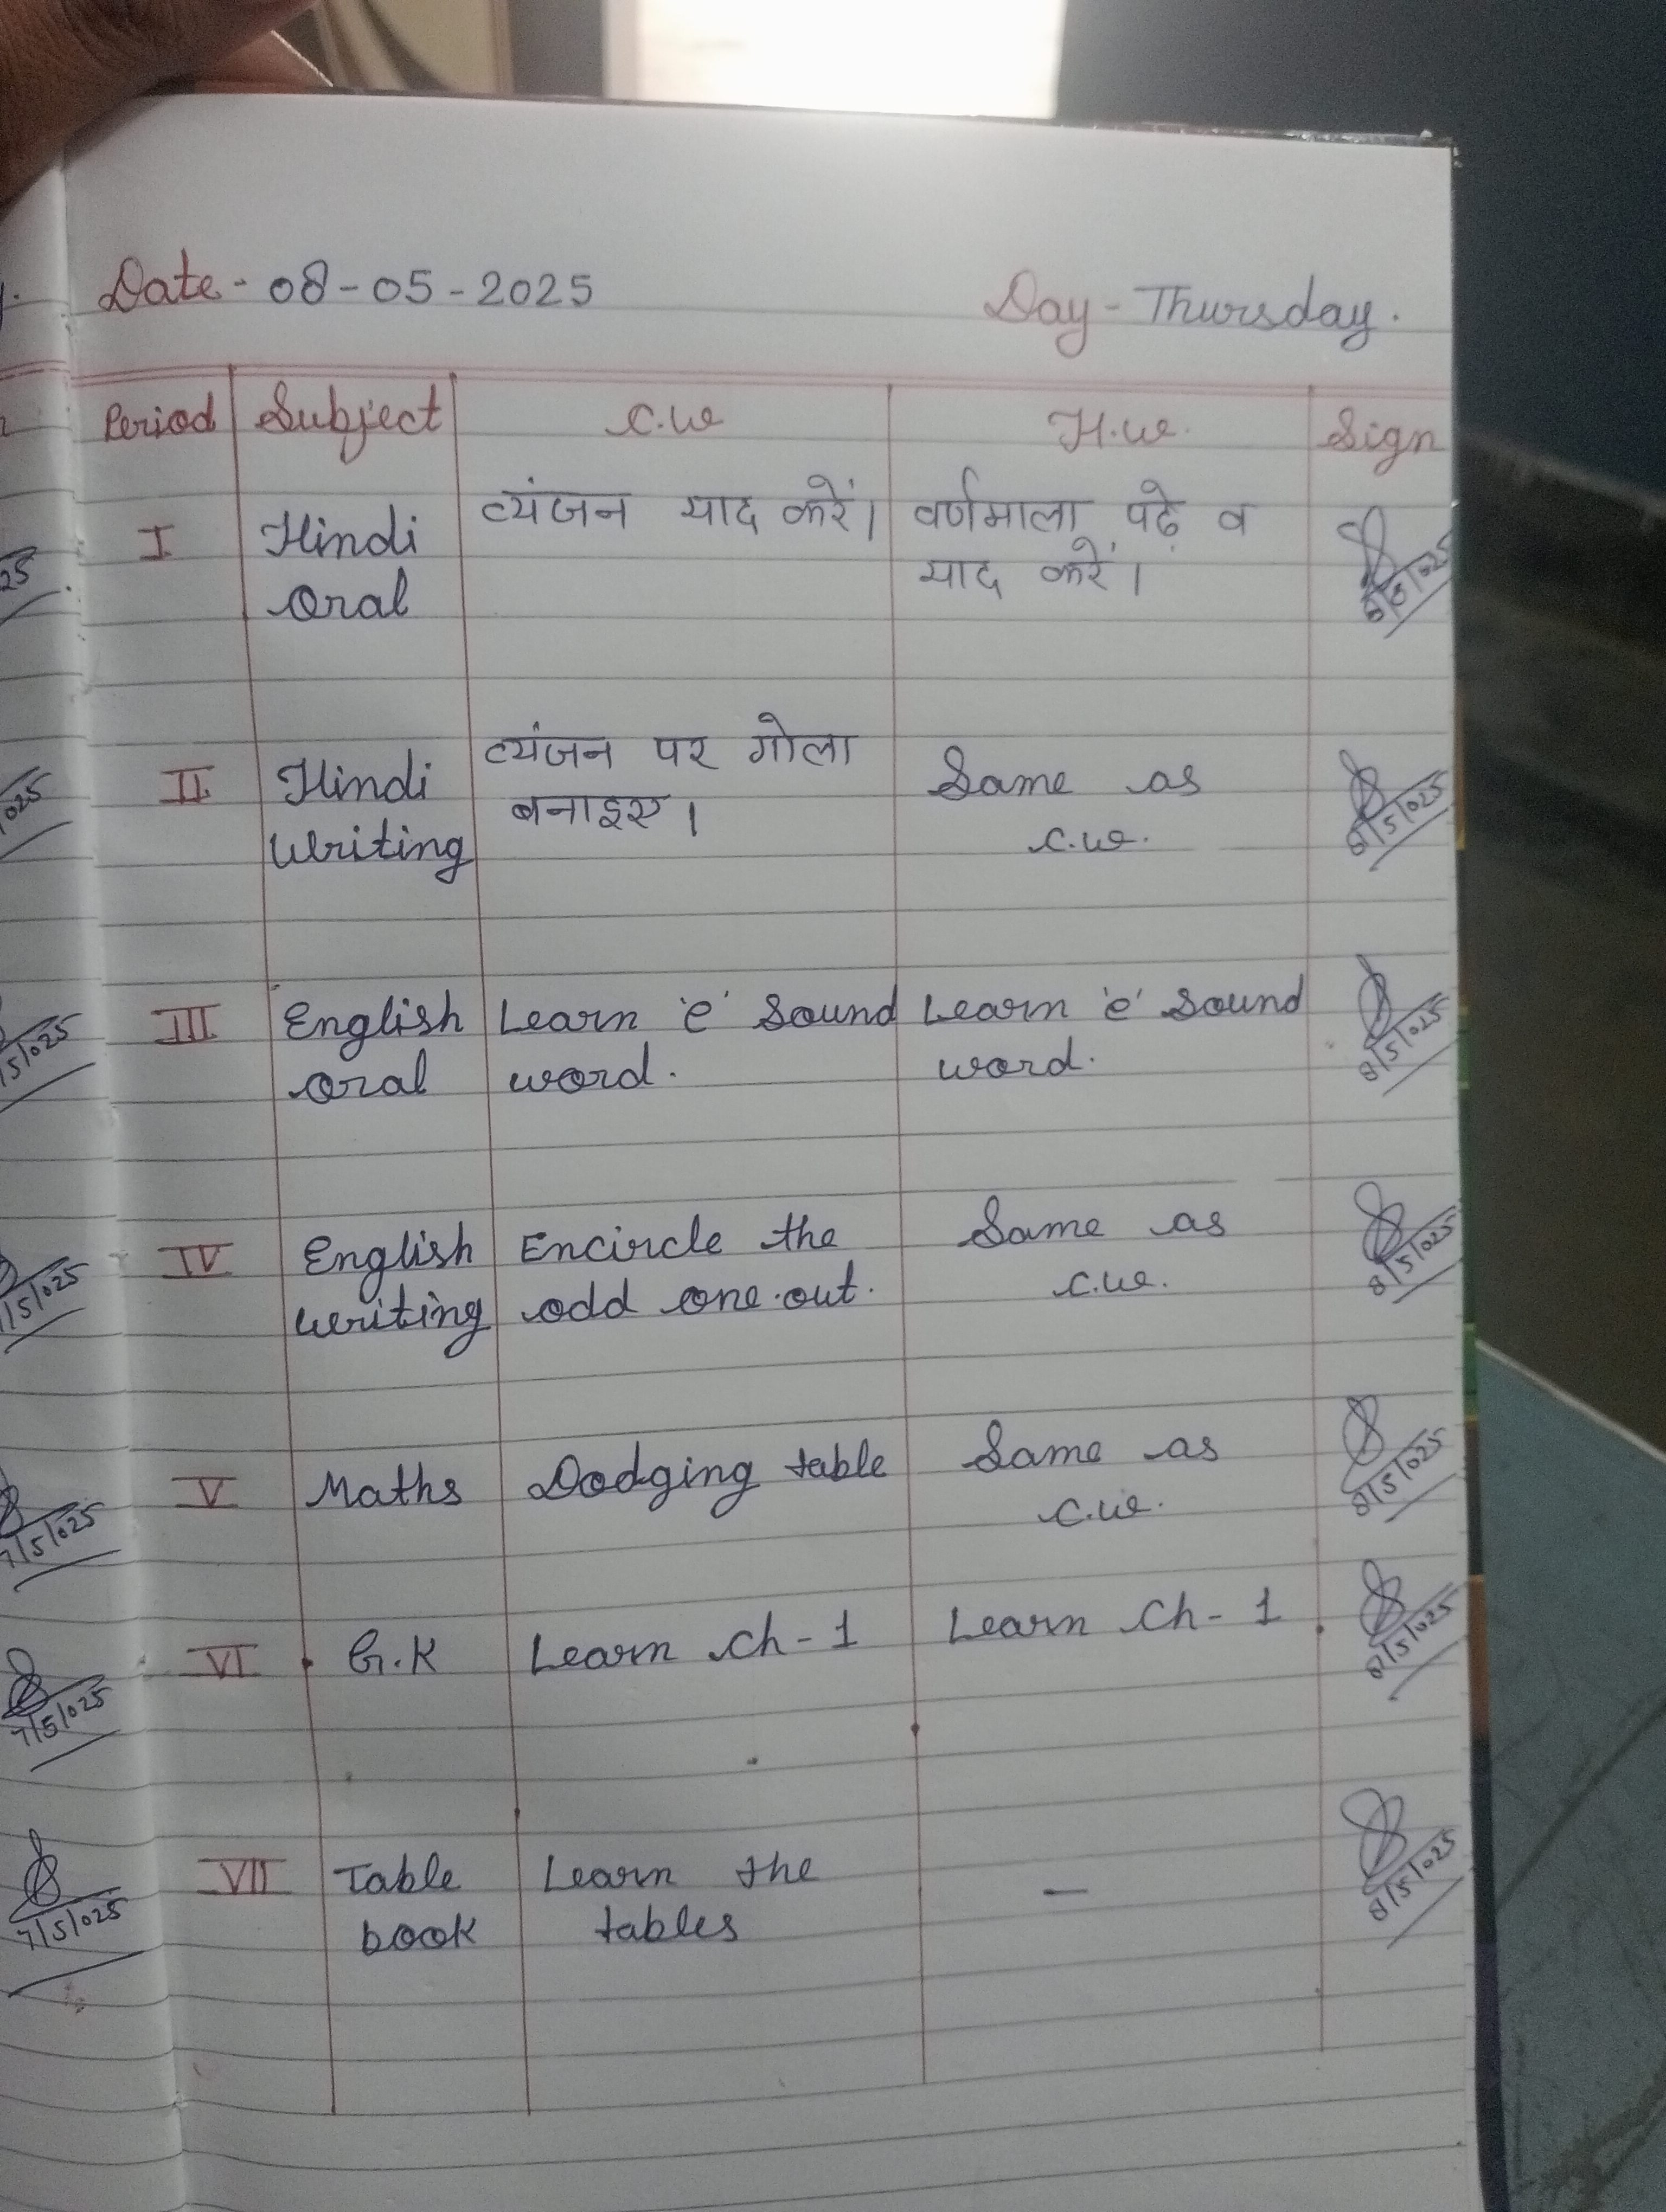 Date - 08-05-2025 Day - Thursday.
Period Subject C.W H.W. Sign
I Hindi Oral व्यंजन याद करें। वर्णमाला पढ़े व याद करें। 8/5/025
II Hindi Writing व्यंजन पर गोला बनाइए। Same as C.W. 8/5/025
III English Oral Learn 'e' Sound word. Learn 'e' Sound word. 8/5/025
IV English Writing Encircle the odd one out. Same as C.W. 8/5/025
V Maths Dodging table Same as C.W. 8/5/025
VI G.K Learn Ch-1 Learn Ch-1 8/5/025
VII Table book Learn the tables — 8/5/025
7/5/025
7/5/025